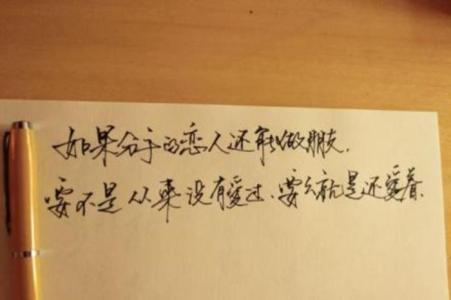 如果分手的恋人还能做朋友.
要不是从来没有爱过.要么就是还爱着.